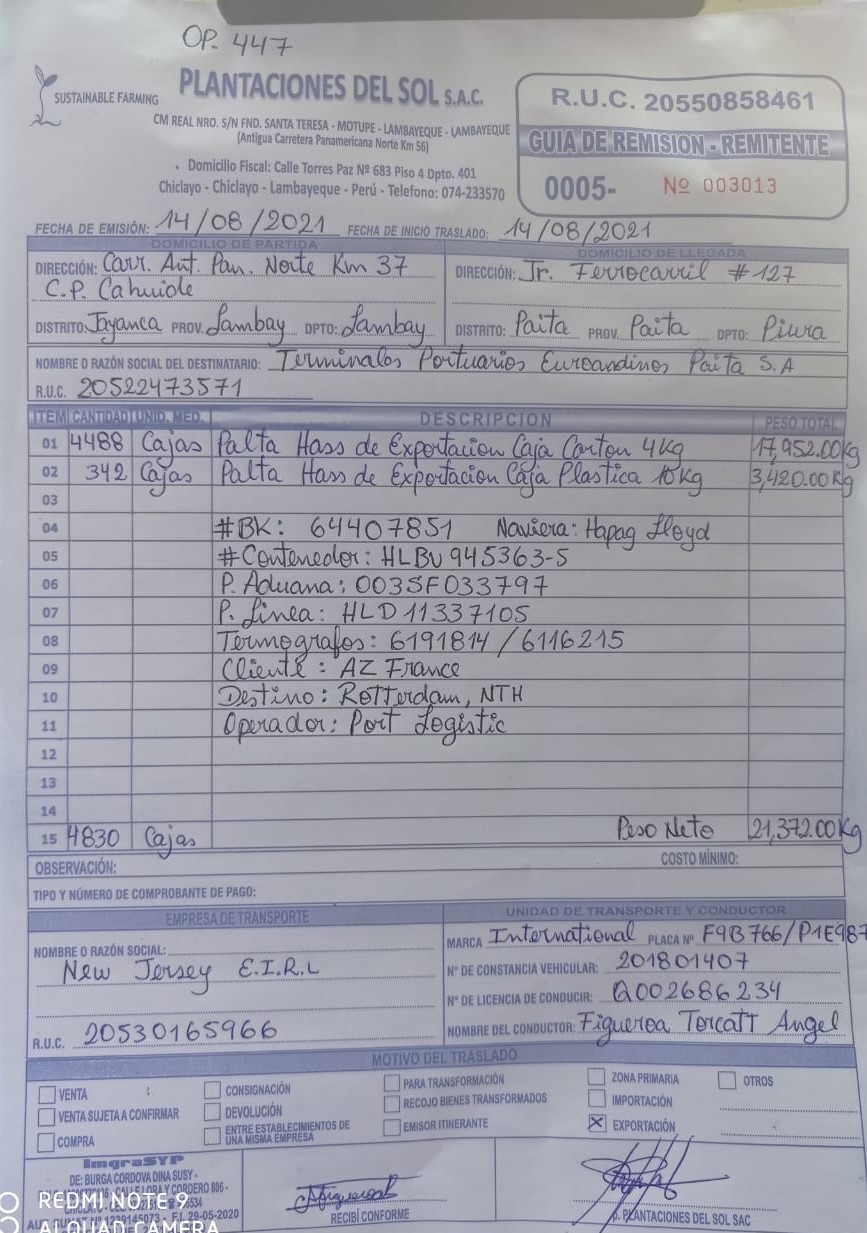 OP. 447
SUSTAINABLE FARMING
PLANTACIONES DEL SOL S.A.C.
CM REAL NRO. S/N FND. SANTA TERESA - MOTUPE - LAMBAYEQUE - LAMBAYEQUE
(Antigua Carretera Panamericana Norte Km 56)
Domicilio Fiscal: Calle Torres Paz Nº 683 Piso 4 Dpto. 401
Chiclayo - Chiclayo - Lambayeque - Perú - Telefono: 074-233570
R.U.C. 20550858461
GUIA DE REMISION - REMITENTE
0005- Nº 003013
FECHA DE EMISIÓN: 14/08/2021 FECHA DE INICIO TRASLADO: 14/08/2021
DOMICILIO DE PARTIDA
DIRECCIÓN: Carr. Ant. Pan. Norte Km 37
C.P. Cahuide
DISTRITO: Jayanca PROV. Lambay DPTO: Lambay
DOMICILIO DE LLEGADA
DIRECCIÓN: Jr. Ferrocarril #127
DISTRITO: Paita PROV. Paita DPTO: Piura
NOMBRE O RAZÓN SOCIAL DEL DESTINATARIO: Terminales Portuarios Euroandinos Paita S.A
R.U.C. 20522473571
ITEM CANTIDAD UNID. MED. DESCRIPCION PESO TOTAL
01 4488 Cajas Palta Hass de Exportacion Caja Carton 4Kg 17,952.00Kg
02 342 Cajas Palta Hass de Exportacion Caja Plastica 10Kg 3,420.00Kg
03
04 #BK: 64407851 Naviera: Hapag Lloyd
05 #Contenedor: HLBU 945363-5
06 P. Aduana: 003SF033797
07 P. Linea: HLD 11337105
08 Termografos: 6191814 / 6116215
09 Cliente: AZ France
10 Destino: Rotterdam, NTH
11 Operador: Port Logistic
12
13
14
15 4830 Cajas Peso Neto 21,372.00Kg
OBSERVACIÓN: COSTO MÍNIMO:
TIPO Y NÚMERO DE COMPROBANTE DE PAGO:
EMPRESA DE TRANSPORTE
NOMBRE O RAZÓN SOCIAL:
New Jersey E.I.R.L
R.U.C. 20530165966
UNIDAD DE TRANSPORTE Y CONDUCTOR
MARCA International PLACA Nº F9B766/P1E987
Nº DE CONSTANCIA VEHICULAR: 201801407
Nº DE LICENCIA DE CONDUCIR: Q002686234
NOMBRE DEL CONDUCTOR: Figueroa Torcatt Angel
MOTIVO DEL TRASLADO
VENTA CONSIGNACIÓN PARA TRANSFORMACIÓN ZONA PRIMARIA OTROS
VENTA SUJETA A CONFIRMAR DEVOLUCIÓN RECOJO BIENES TRANSFORMADOS IMPORTACIÓN
COMPRA ENTRE ESTABLECIMIENTOS DE UNA MISMA EMPRESA EMISOR ITINERANTE X EXPORTACIÓN
ImgraSYP
DE: BURGA CORDOVA DINA SUSY -
RECIBÍ CONFORME
p. PLANTACIONES DEL SOL SAC
F.I. 29-05-2020
REDMI NOTE 9
AI QUAD CAMERA